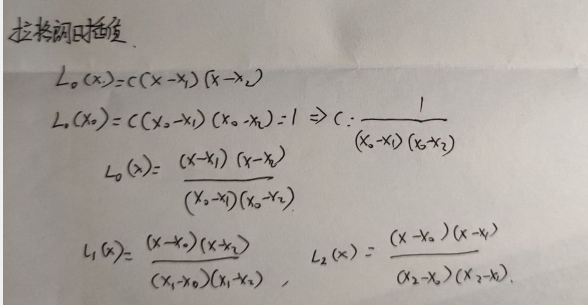 拉格朗日插值.
L₀(x)=c(x-x₁)(x-x₂)
L₀(x₀)=c(x₀-x₁)(x₀-x₂)=1 ⇒ c=1/((x₀-x₁)(x₀-x₂))
L₀(x)=((x-x₁)(x-x₂))/((x₀-x₁)(x₀-x₂))
L₁(x)=((x-x₀)(x-x₂))/((x₁-x₀)(x₁-x₂)), L₂(x)=((x-x₀)(x-x₁))/((x₂-x₀)(x₂-x₁)).